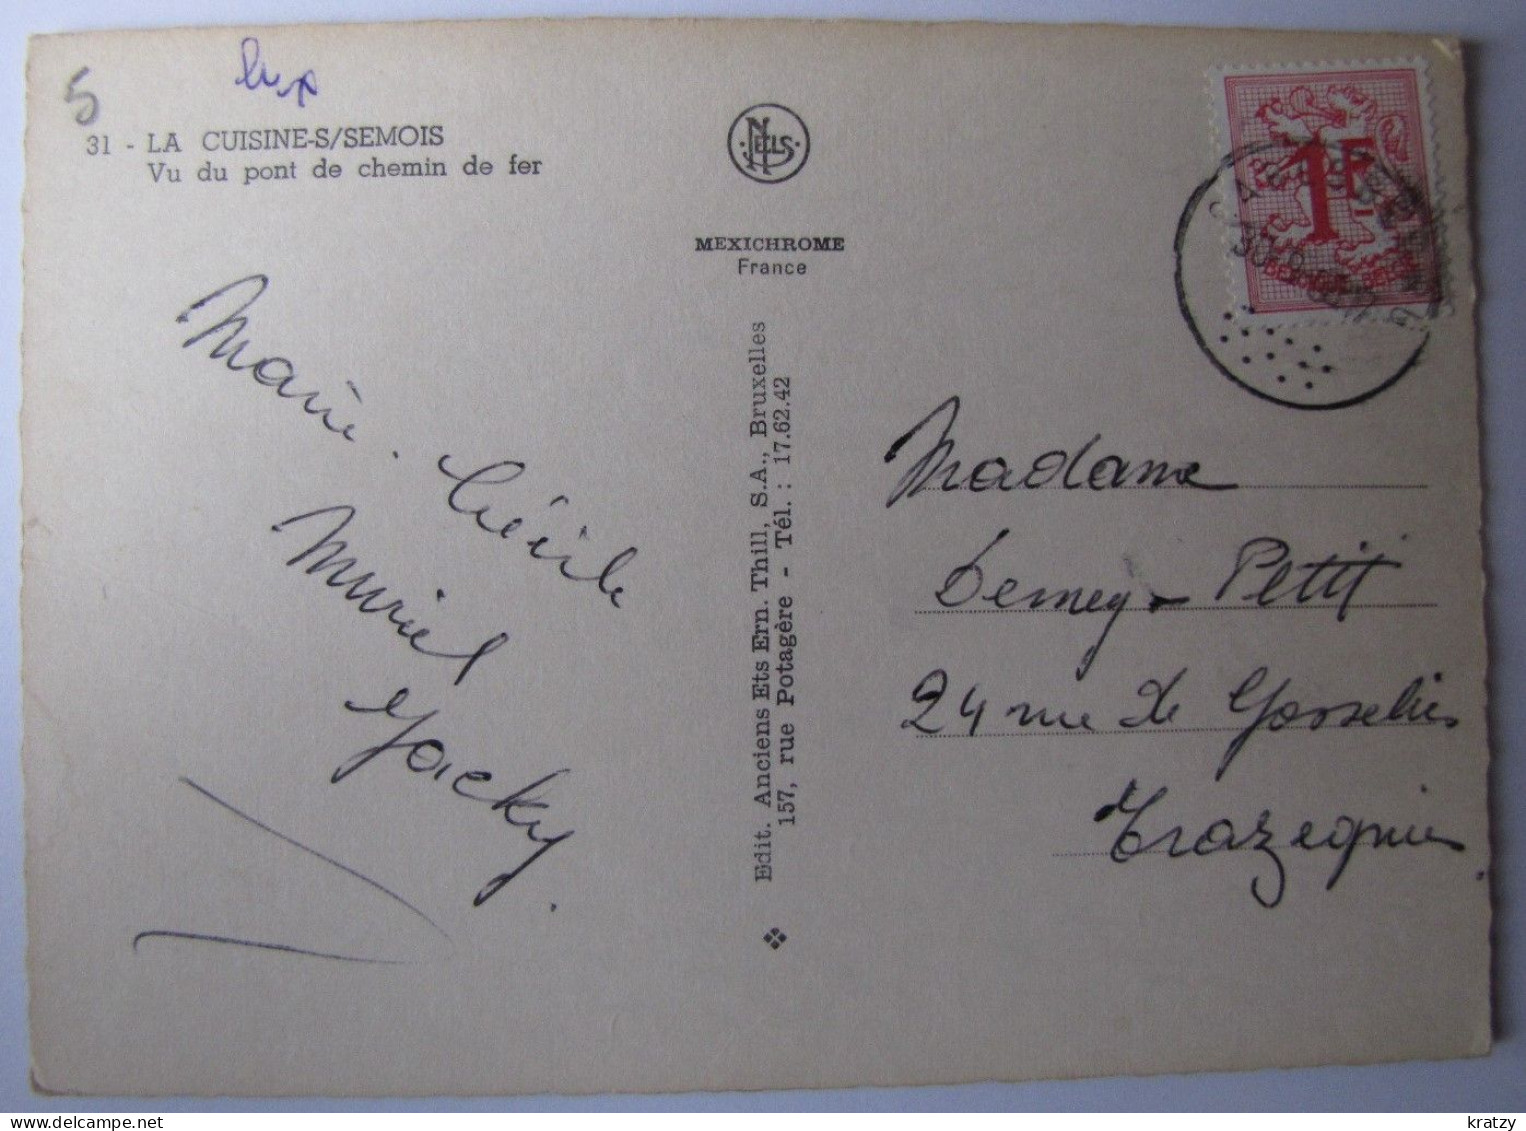 5
31 - LA CUISINE-S/SEMOIS
Vu du pont de chemin de fer
NELS
MEXICHROME
France
Edit. Anciens Ets Ern. Thill, S.A., Bruxelles
157, rue Potagère - Tél. : 17.62.42
Marie-Cécile
Muriel
Jacky.
1F
BELGIQUE-BELGIE
Madame
Demey-Petit
24 rue de Gosselies
Trazegnies.
kratzy